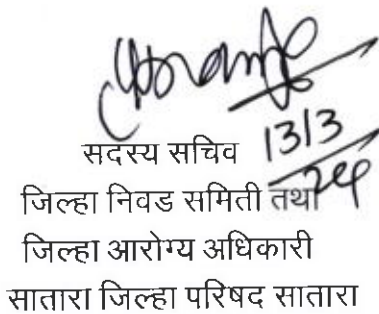 सदस्य सचिव
13/3
24
जिल्हा निवड समिती तथा
जिल्हा आरोग्य अधिकारी
सातारा जिल्हा परिषद सातारा